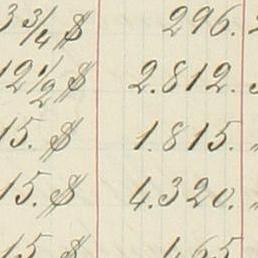 3 3/4 $ 296.
12 1/2 $ 2.812.
15. $ 1.815.
15. $ 4.320.
15 $ 465